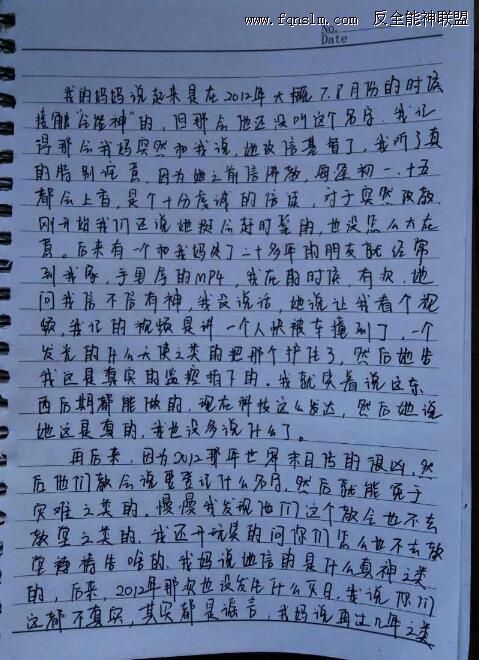 www.fqnslm.com 反全能神联盟
No.
Date
我的妈妈说起来是在2012年大概7.8月份的时候
接触“全能神”的，但那会他还没叫这个名字，我记
得那会我妈突然和我说，她改信基督了，我听了真
的特别诧异，因为她之前信佛教，每逢初一、十五
都会上香，是个十分虔诚的信徒，对于突然改教，
刚开始我们还说她挺会赶时髦的，也没怎么太在
意。后来有一个和我妈处了二十多年的朋友就经常
到我家，手里拿的MP4，我在的时候，有次，她
问我信不信有神，我没说话，她说让我看个视
频，我记的视频是讲一个人快被车撞到了，一个
发光的什么天使之类的把那个护住了，然后她告
我这是真实的监控拍下的。我就笑着说这东
西后期都能做的，现在科技这么发达，然后她说
她这是真的，我也没多说什么了。
再后来，因为2012那年世界末日传的很凶，然
后他们教会说要登记什么名额，然后就能免于
灾难之类的，慢慢我发现他们这个教会也不去
教堂之类的，我还开玩笑的问你们怎么也不去教
堂祷告啥的，我妈说她信的是什么真神之类
的，后来，2012年那次也没发生什么灭日，我说你们
这都不真实，其实都是谣言，我妈说再过几年之类